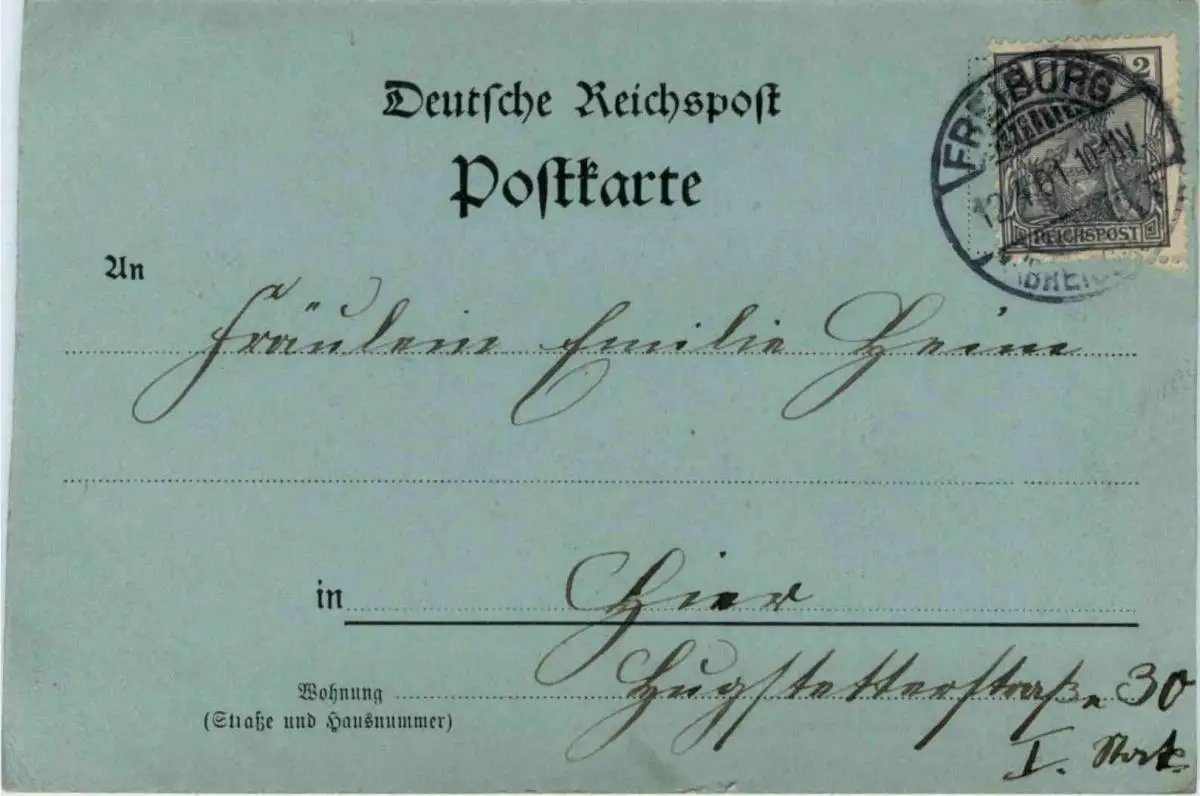 Deutsche Reichspost
Postkarte
2
FREIBURG
12.4.01.10-11V.
(BREISGAU)
REICHSPOST
An
Fräulein Emilie Heim
in Hier
Wohnung Hugstetterstraße 30
(Straße und Hausnummer)
I. Stock